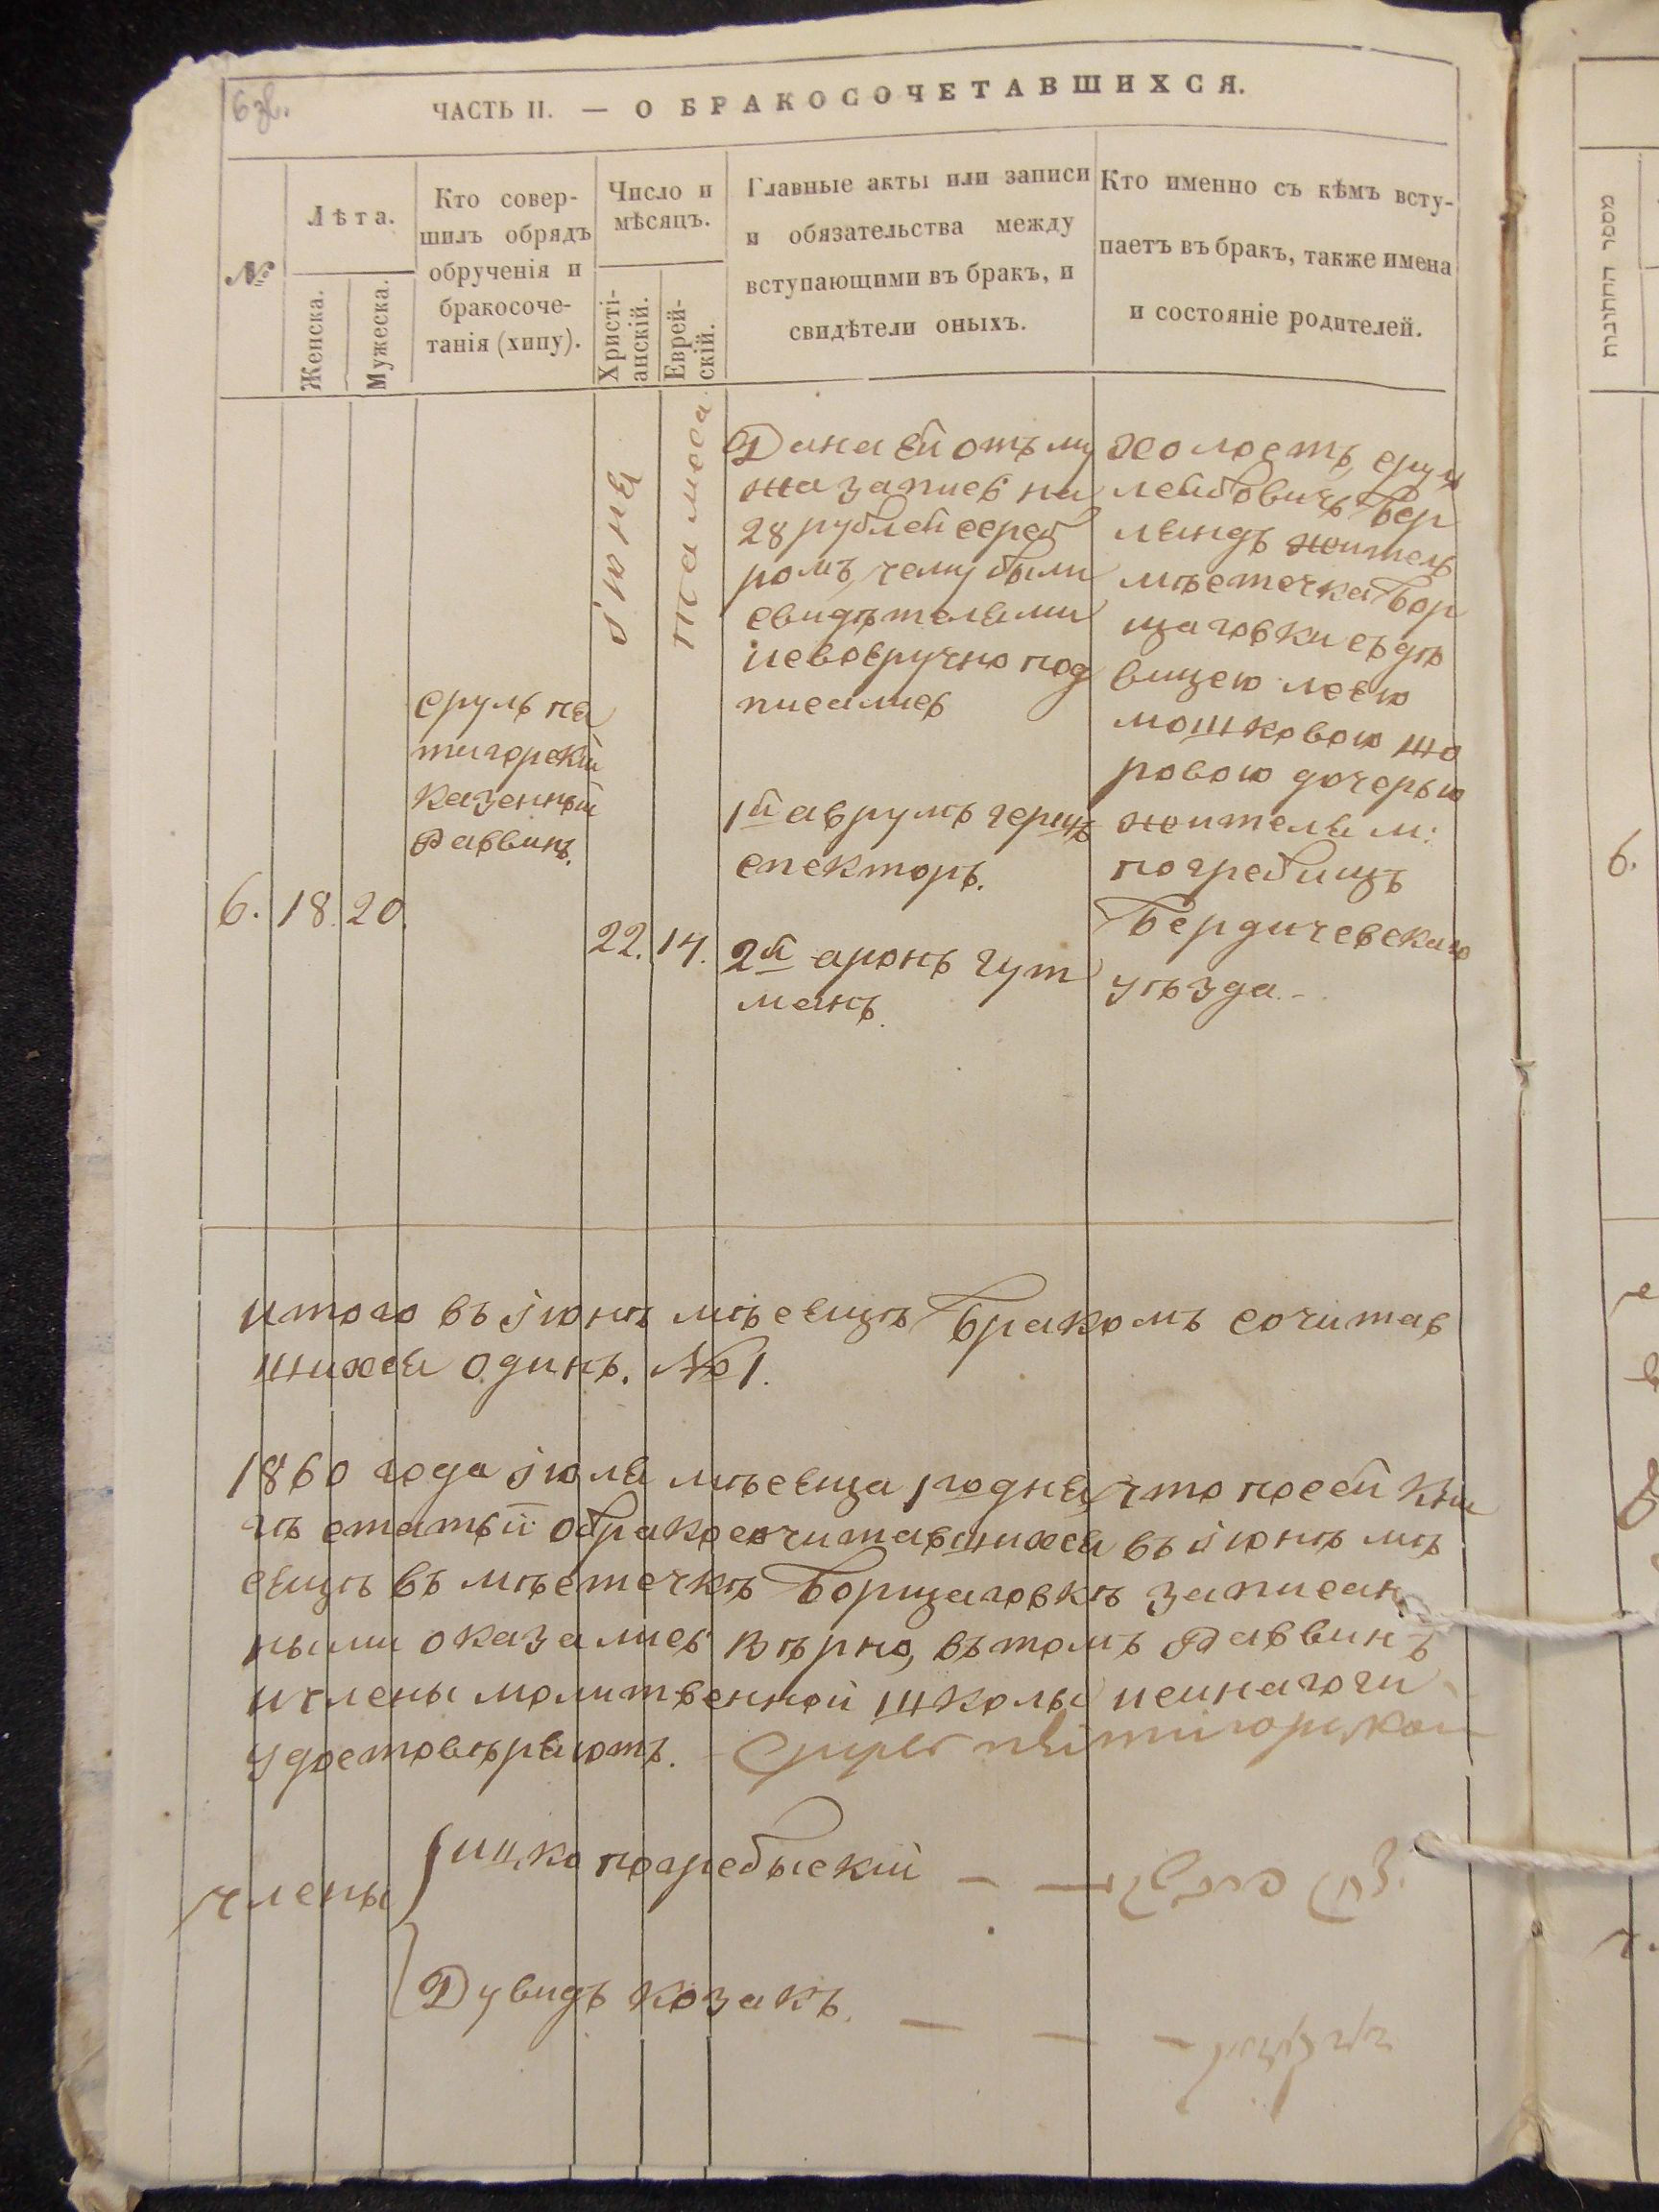 6 об.
ЧАСТЬ II. — О БРАКОСОЧЕТАВШИХСЯ.
№
Лѣта.
Женска.
Мужеска.
Кто совер-
шилъ обрядъ
обрученія и
бракосоче-
танія (хипу).
Число и
мѣсяцъ.
Христі-
анскій.
Еврей-
скій.
Главные акты или записи
и обязательства между
вступающими въ бракъ, и
свидѣтели оныхъ.
Кто именно съ кѣмъ всту-
паетъ въ бракъ, также имена
и состояніе родителей.
6.
18.
20.
сруль пя
тигорскій
казенный
Раввинъ.
Іюня
22.
Тамоса
14.
Дана ей отъ му
жа запись на
28 рублей сереб
ромъ, чему были
свидѣтелями
исвовручно под
писались
1й аврумъ герш
спекторъ.
2й аронъ гут
манъ.
холостъ, срул
лейбовичъ Бер
ляндъ житель
мѣстечка Бор
щаговки съ дѣ
вицею леею
мошковою
ровою дочерью
жителя м:
погребищъ
Бердичевскаго
уѣзда.-
итого въ Іюнѣ мѣсяцѣ Бракомъ сочитав
шихся одинъ. №1.
1860 года Іюля мѣсяца 1го дня, что по сей кни
гѣ статьи обракосочитавшихся въ Іюнѣ мѣ
сяцѣ въ мѣстечкѣ Борщаговкѣ записан
ными оказались вѣрно, въ томъ Раввинъ
и члены молитвенной школы исинагоги
удостовѣряютъ. Сруль пятигорской
члены
ицко погребыскій
Дувидъ козакъ.
מספר החתונות
6.